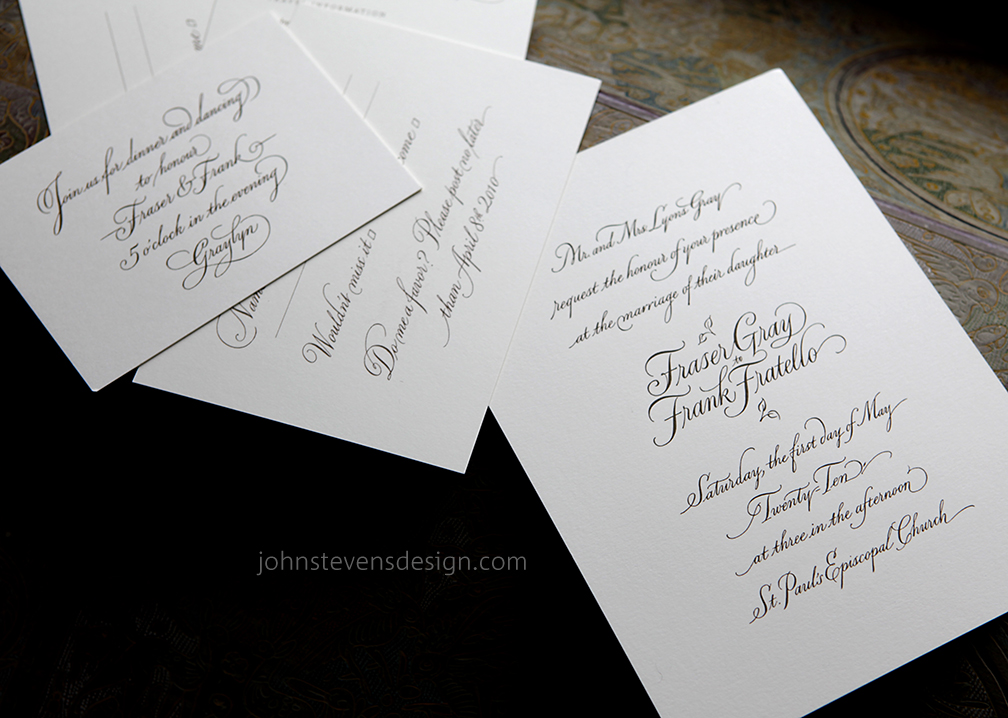 INFORMATION
me
Join us for dinner and dancing
to honour
Fraser & Frank
5 o'clock in the evening
Graylyn
come
Nam
Wouldn't miss it
Do me a favor? Please post no later
than April 8th 2010
Mr. and Mrs Lyons Gray
request the honour of your presence
at the marriage of their daughter
Fraser Gray
to
Frank Fratello
Saturday, the first day of May
Twenty-Ten
at three in the afternoon
St. Paul's Episcopal Church
johnstevensdesign.com